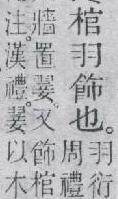 棺羽飾也。羽衍
周禮
牆置翣。又飾棺
注。漢禮。翣以木